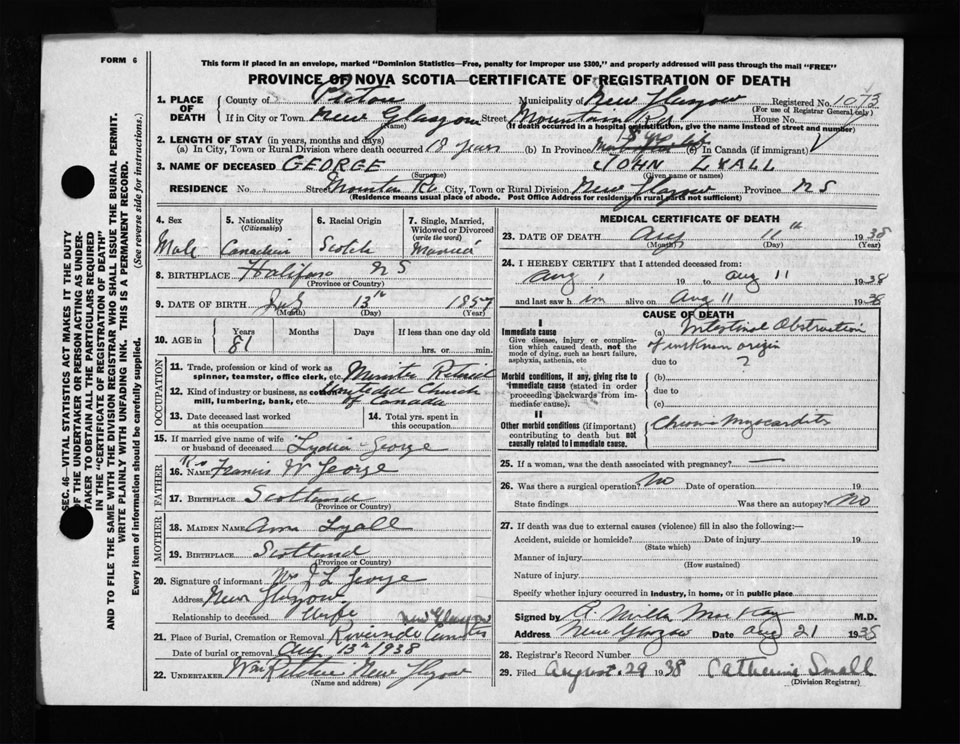 FORM 6
This form if placed in an envelope, marked "Dominion Statistics—Free, penalty for improper use $300," and properly addressed will pass through the mail "FREE"
PROVINCE OF NOVA SCOTIA—CERTIFICATE OF REGISTRATION OF DEATH
1. PLACE OF DEATH County of Pictou Municipality of New Glasgow Registered No. 1073
(For use of Registrar General only)
If in City or Town New Glasgow Street Mountain Rd House No.
(Name) (If death occurred in a hospital or institution, give the name instead of street and number)
2. LENGTH OF STAY (in years, months and days)
(a) In City, Town or Rural Division where death occurred 18 years (b) In Province (c) In Canada (if immigrant)
3. NAME OF DECEASED GEORGE JOHN LYALL
(Surname) (Given name or names)
RESIDENCE No. Street Mountain Rd City, Town or Rural Division New Glasgow Province N S
(Residence means usual place of abode. Post Office Address for residents in rural parts not sufficient)
4. Sex Male
5. Nationality (Citizenship) Canadian
6. Racial Origin Scotch
7. Single, Married, Widowed or Divorced (write the word) Married
8. BIRTHPLACE Halifax N S
(Province or Country)
9. DATE OF BIRTH July 13th 1857
(Month) (Day) (Year)
10. AGE in Years 81 Months Days If less than one day old
hrs. or min.
OCCUPATION
11. Trade, profession or kind of work as spinner, teamster, office clerk, etc. Minister Retired
12. Kind of industry or business, as cotton mill, lumbering, bank, etc. United Church of Canada
13. Date deceased last worked at this occupation
14. Total yrs. spent in this occupation
15. If married give name of wife or husband of deceased Lydia George
FATHER
16. NAME Francis W George
17. BIRTHPLACE Scotland
(Province or Country)
MOTHER
18. MAIDEN NAME Ann Lyall
19. BIRTHPLACE Scotland
(Province or Country)
20. Signature of informant Mrs J L George
Address New Glasgow
Relationship to deceased Wife
New Glasgow
21. Place of Burial, Cremation or Removal Riverside
Date of burial or removal Aug 13th 1938
22. UNDERTAKER New Glasgow
(Name and address)
MEDICAL CERTIFICATE OF DEATH
23. DATE OF DEATH Aug 11th 1938
(Month) (Day) (Year)
24. I HEREBY CERTIFY that I attended deceased from:
Aug 1 19 to Aug 11 1938
and last saw h im alive on Aug 11 1938
CAUSE OF DEATH
I
Immediate cause
Give disease, injury or complication which caused death, not the mode of dying, such as heart failure, asphyxia, asthenia, etc
(a) Intestinal Obstruction
of unknown origin
due to ?
Morbid conditions, if any, giving rise to immediate cause (stated in order proceeding backwards from immediate cause).
(b)
due to
(c)
II
Other morbid conditions (if important) contributing to death but not causally related to immediate cause.
Chronic Myocarditis
25. If a woman, was the death associated with pregnancy? —
26. Was there a surgical operation? No Date of operation 19
State findings Was there an autopsy? No
27. If death was due to external causes (violence) fill in also the following:—
Accident, suicide or homicide? Date of injury 19
(State which)
Manner of injury
(How sustained)
Nature of injury
Specify whether injury occurred in industry, in home, or in public place
Signed by Mac Kay M.D.
Address New Glasgow Date Aug 21 1938
28. Registrar's Record Number
29. Filed August 29 1938 Catherine Small
(Division Registrar)
SEC. 46—VITAL STATISTICS ACT MAKES IT THE DUTY
OF THE UNDERTAKER OR PERSON ACTING AS UNDERTAKER TO OBTAIN ALL THE PARTICULARS REQUIRED
IN THE "CERTIFICATE OF REGISTRATION OF DEATH"
AND TO FILE THE SAME WITH THE DIVISION REGISTRAR WHO SHALL ISSUE THE BURIAL PERMIT.
WRITE PLAINLY WITH UNFADING INK. THIS IS A PERMANENT RECORD.
Every item of information should be carefully supplied. (See reverse side for instructions.)